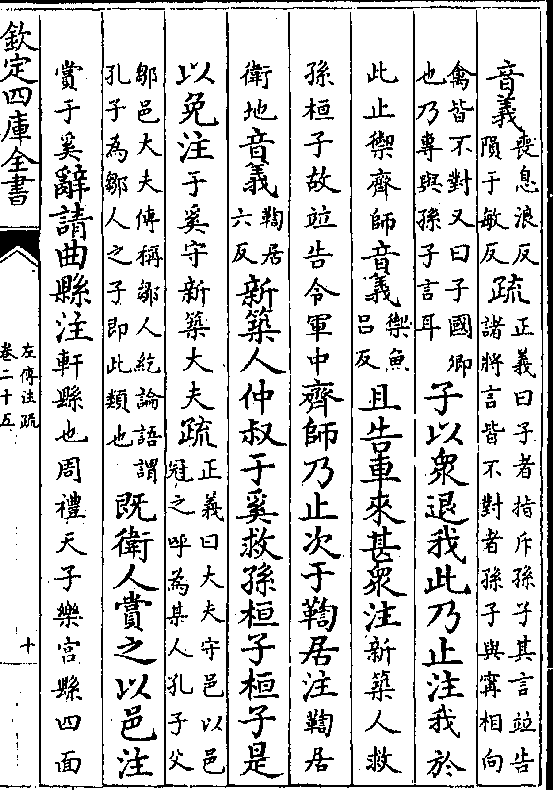 音義喪息浪反
隕于敏反疏正義曰子者指斥孫子其言竝告
諸將言皆不對者孫子與甯相向
禽皆不對又曰子國卿
也乃專與孫子言耳子以衆退我此乃止注我於
此止禦齊師音義禦魚
呂反且告車來甚衆注新築人救
孫桓子故竝告令軍中齊師乃止次于鞫居注鞫居
衛地音義鞫居
六反新築人仲叔于奚救孫桓子桓子是
以免注于奚守新築大夫疏正義曰大夫守邑以邑
冠之呼為某人孔子父
鄒邑大夫傳稱鄒人紇論語謂
孔子為鄒人之子即此類也既衛人賞之以邑注
賞于奚辭請曲縣注軒縣也周禮天子樂宫縣四面
欽定四庫全書
左傳注疏
卷二十五
十